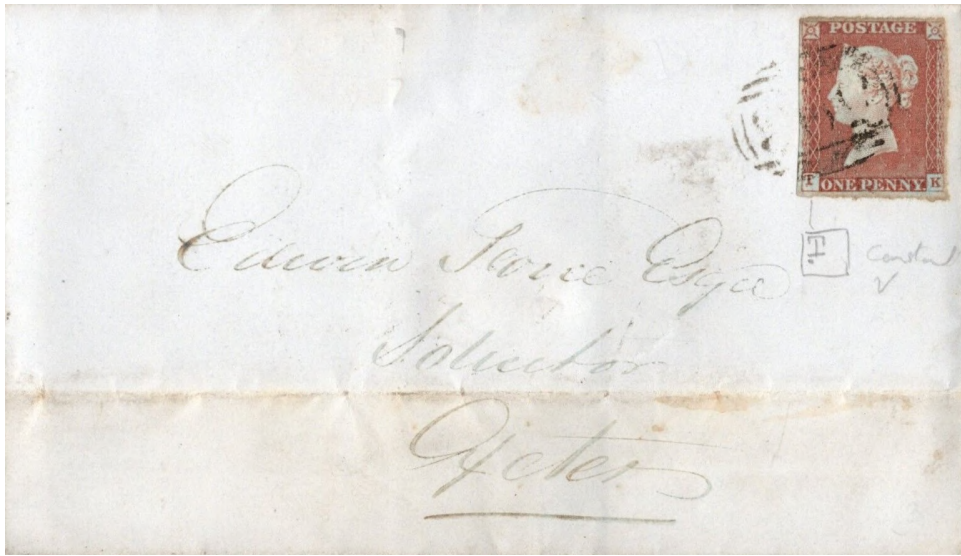 POSTAGE
T ONE PENNY K
T
Edwin Force Esqre
Solicitor
Exeter